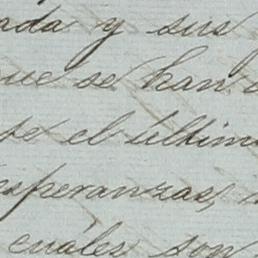 ada y sus
que se han
se el último
esperanzas,
cuáles son